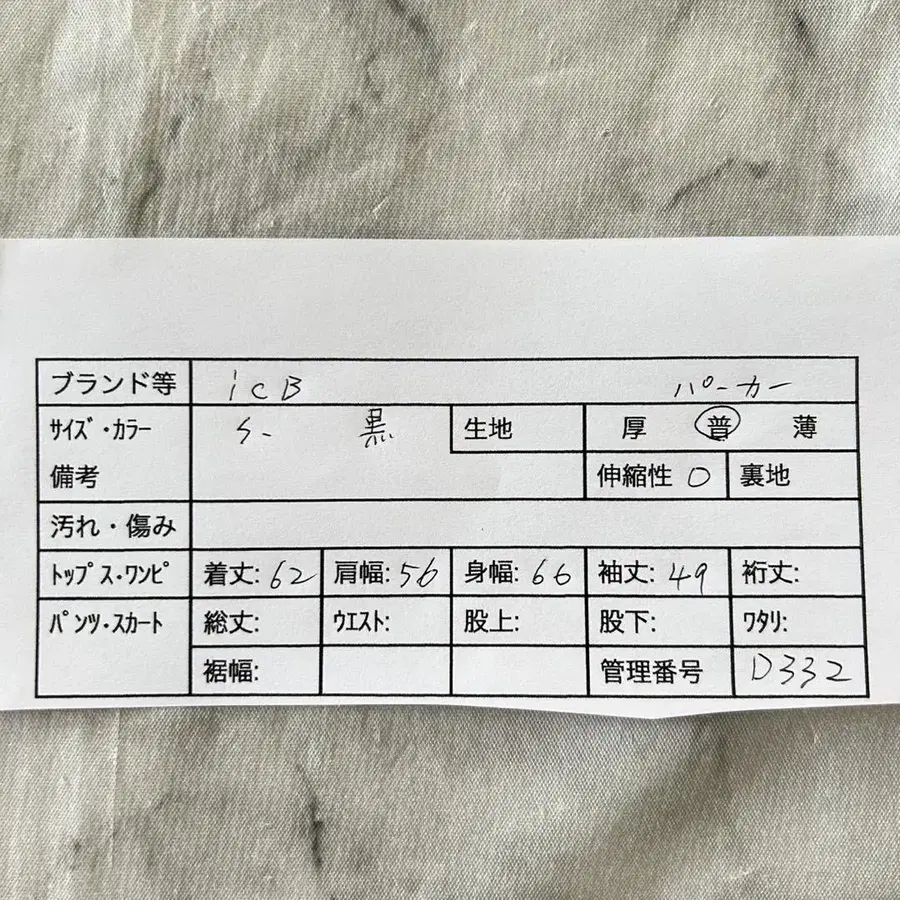 ブランド等 icB パーカー
ｻｲｽﾞ・ｶﾗｰ 黒 生地 厚 普 薄
備考 伸縮性 〇 裏地
汚れ・傷み
ﾄｯﾌﾟｽ・ﾜﾝﾋﾟ 着丈: 62 肩幅: 56 身幅: 66 袖丈: 49 裄丈:
ﾊﾟﾝﾂ・ｽｶｰﾄ 総丈: ｳｴｽﾄ: 股上: 股下: ﾜﾀﾘ:
裾幅: 管理番号 D332